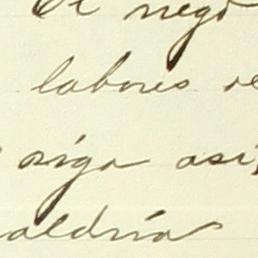 negó
labores
siga así,
aldría